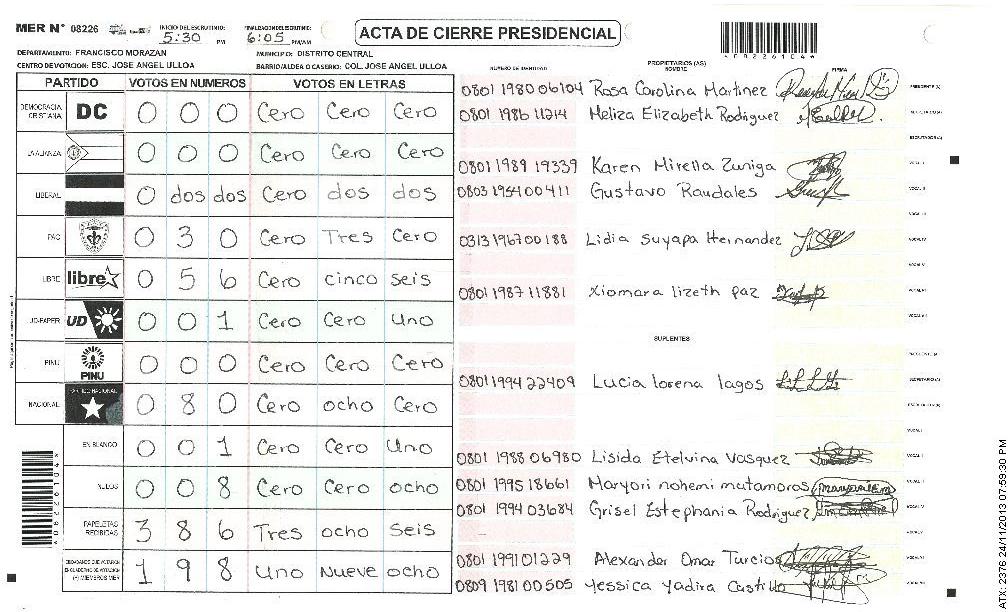 MER N° 08226
INICIO DEL ESCRUTINIO: 5:30 PM
FINALIZACION ESCRUTINIO: 6:05 PM/AM
ACTA DE CIERRE PRESIDENCIAL
DEPARTAMENTO: FRANCISCO MORAZAN
MUNICIPIO: DISTRITO CENTRAL
CENTRO DE VOTACION: ESC. JOSE ANGEL ULLOA
BARRIO/ALDEA O CASERIO: COL. JOSE ANGEL ULLOA
PARTIDO VOTOS EN NUMEROS VOTOS EN LETRAS
DEMOCRACIA CRISTIANA DC 0 0 0 Cero Cero Cero
LA ALIANZA 0 0 0 Cero Cero Cero
LIBERAL 0 dos dos Cero dos dos
PAC 0 3 0 Cero Tres Cero
LIBRE libre 0 5 6 Cero cinco seis
UD-FAPER UD 0 0 1 Cero Cero Uno
PINU PINU 0 0 0 Cero Cero Cero
NACIONAL PARTIDO NACIONAL 0 8 0 Cero ocho Cero
EN BLANCO 0 0 1 Cero Cero Uno
NULOS 0 0 8 Cero Cero ocho
PAPELETAS RECIBIDAS 3 8 6 Tres ocho seis
CIUDADANOS QUE VOTARON EN CUADERNO DE VOTACION (+) MIEMBROS MER 1 9 8 Uno Nueve ocho
NUMERO DE IDENTIDAD PROPIETARIOS (AS) NOMBRE FIRMA
0801 1980 06104 Rosa Carolina Martinez PRESIDENTE (A)
0801 1986 11214 Meliza Elizabeth Rodriguez SECRETARIO (A)
ESCRUTADOR (A)
0801 1989 19339 Karen Mirella Zuniga VOCAL I
0803 1954 00411 Gustavo Raudales VOCAL II
VOCAL III
0313 1967 00188 Lidia Suyapa Hernandez VOCAL IV
VOCAL V
0801 1987 11881 Xiomara lizeth paz VOCAL VI
VOCAL VII
SUPLENTES
PRESIDENTE (A)
0801 1994 22409 Lucia lorena lagos SECRETARIO (A)
ESCRUTADOR (A)
VOCAL I
0801 1988 06980 Lisida Etelvina Vasquez VOCAL II
0801 1995 18661 Maryori nohemi matamoros VOCAL III
0801 1994 03684 Grisel Estephania Rodriguez VOCAL IV
VOCAL V
0801 1991 01229 Alexander Omar Turcios VOCAL VI
0809 1981 00505 Yessica Yadira Castillo VOCAL VII
*08226104*
*08226104*
ATX: 2376 24/11/2013 07:59:30 PM